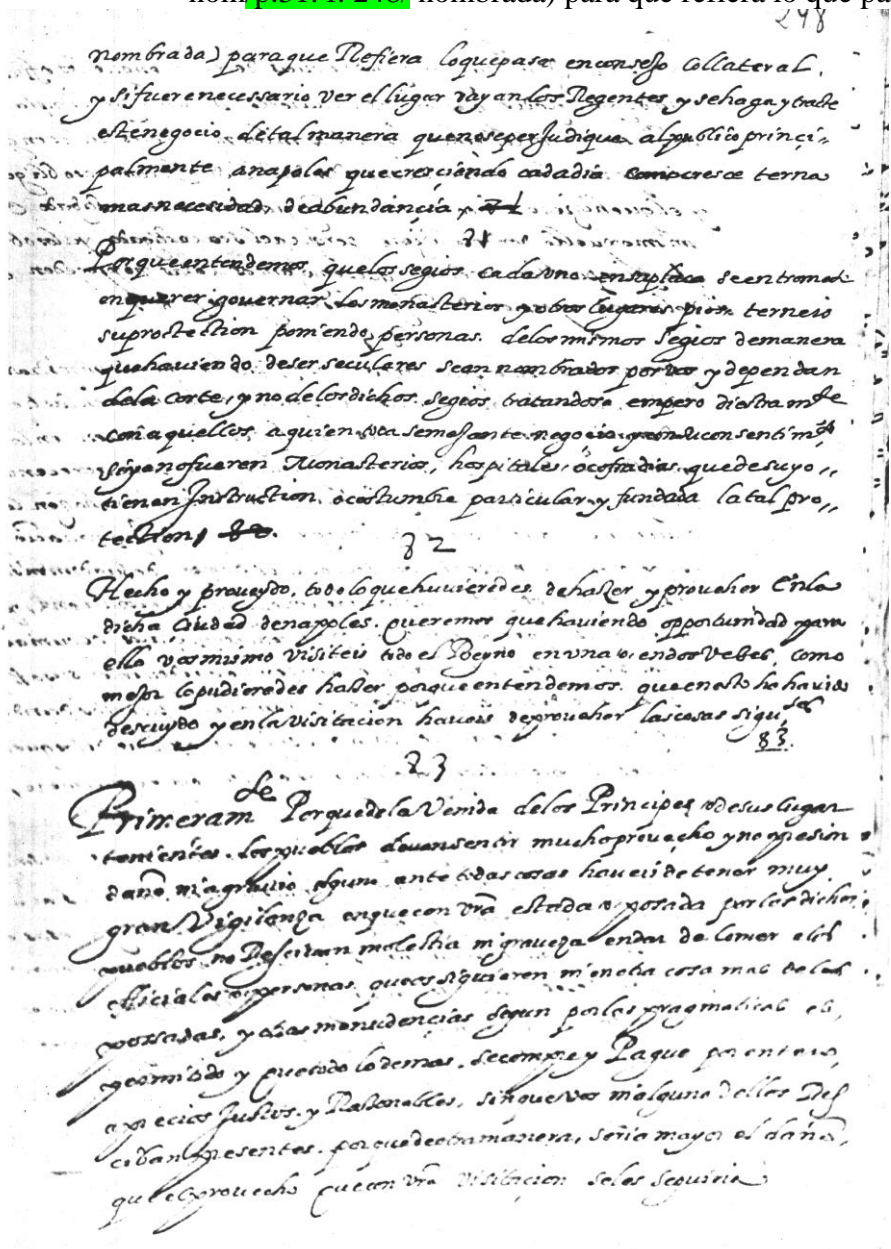 nom/p.31. f. 248/ nombrada) para que refiera lo que pa
248
nombrada) para que Refiera loquepasa enconsejo Collateral,
y sifuerenecessario ver el lugar vayan los Regentes y sehaga y tracte
estenegocio detal manera quenoseperjudique alpublico princi„
palmente anapoles quecresciendo cadadia terna
masnecesidad deabundancia
81
Porqueentendemos, quelos segios cadauno ensuplaça seentromet
enquerer governar los monasterios y otros lugares pios
suprotection poniendo personas. delosmismos Segios demanera
quehaviendo deser seculares sean nombrados por vos y dependan
dela Corte, y no delosdichos segios tratandose empero diestram.te
con aquellos aquien toca semejante negocio consentim.to
sino fueren Monasterios, hospitales, ocofradias quedesuyo„
tienen Instruction ocostumbre particular y fundada latal pro„
tection
82
Hecho y proueydo, todo loquehuvieredes dehaser y proueher Enla
dicha Ciudad denapoles queremos quehaviendo opportunidad para
ello vos mismo visiteis todo el Reyno en una o endos vezes, como
mejor lo pudieredes haser porque entendemos que enesto ha havido
descuydo y enla visitacion haveis deproueher lascosas sigu.tes
83.
83
Primeram.te Porquedela Venida delos Principes odesus lugar
tenientes los pueblos devan sentir mucho provecho y no opresion
daño ni agravio alguno ante todas cosas haveis de tener muy
gran Vigilança enque con vra estada o posada por los dichos
pueblos no Resciban molestia ni graveza endar de Comer alos
officiales opersonas queos siguieren ni en otra cosa mas delas
possadas, y otras menudencias segun por las pragmaticas es,
permitido y quetodo lodemas, secompre y Pague por entero,
aprecios Justos y Rasonables, sinque vos ni alguno dellos Res
ciban presentes. porquedeotramanera, seria mayor el daño,
que el provecho que con vra visitacion seles seguiria